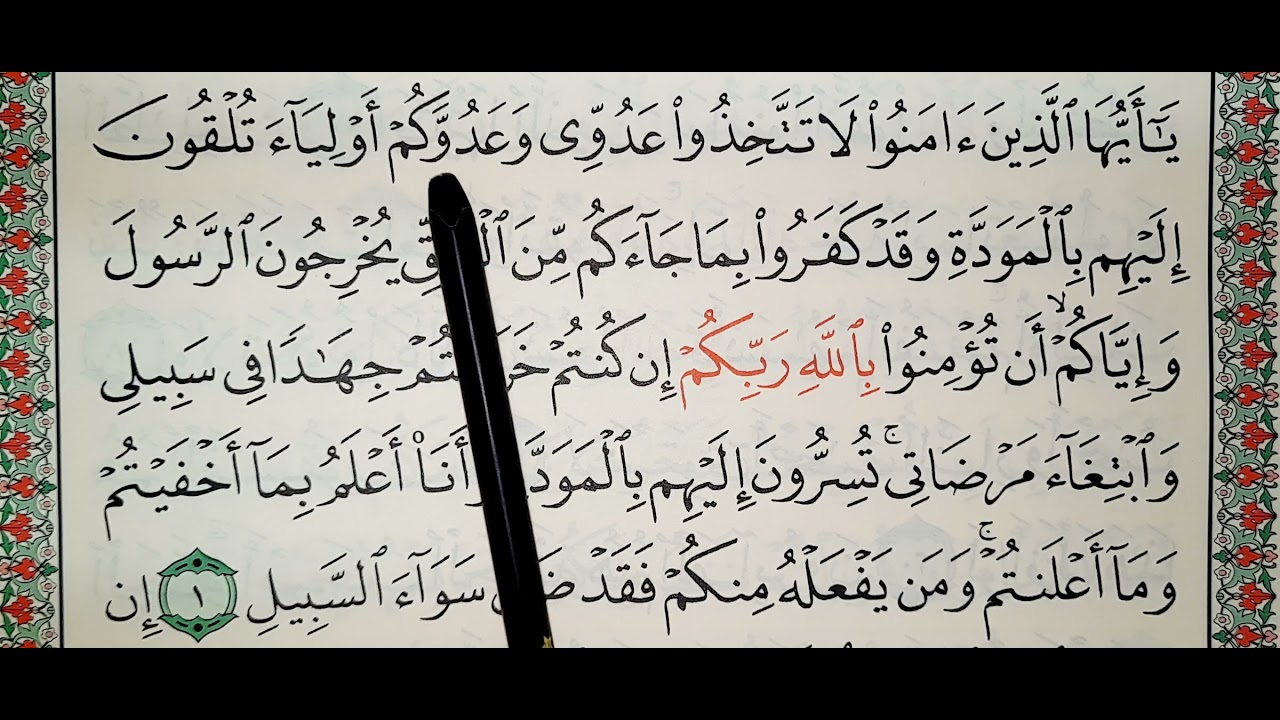 يَـٰٓأَيُّهَا ٱلَّذِينَ ءَامَنُوا۟ لَا تَتَّخِذُوا۟ عَدُوِّى وَعَدُوَّكُمْ أَوْلِيَآءَ تُلْقُونَ
إِلَيْهِم بِٱلْمَوَدَّةِ وَقَدْ كَفَرُوا۟ بِمَا جَآءَكُم مِّنَ يُخْرِجُونَ ٱلرَّسُولَ
وَإِيَّاكُمْ ۙ أَن تُؤْمِنُوا۟ بِٱللَّهِ رَبِّكُمْ إِن كُنتُمْ جِهَـٰدًا فِى سَبِيلِى
وَٱبْتِغَآءَ مَرْضَاتِى ۚ تُسِرُّونَ إِلَيْهِم أَعْلَمُ بِمَآ أَخْفَيْتُمْ
وَمَآ أَعْلَنتُمْ ۚ وَمَن يَفْعَلْهُ مِنكُمْ فَقَدْ سَوَآءَ ٱلسَّبِيلِ ١ إِن